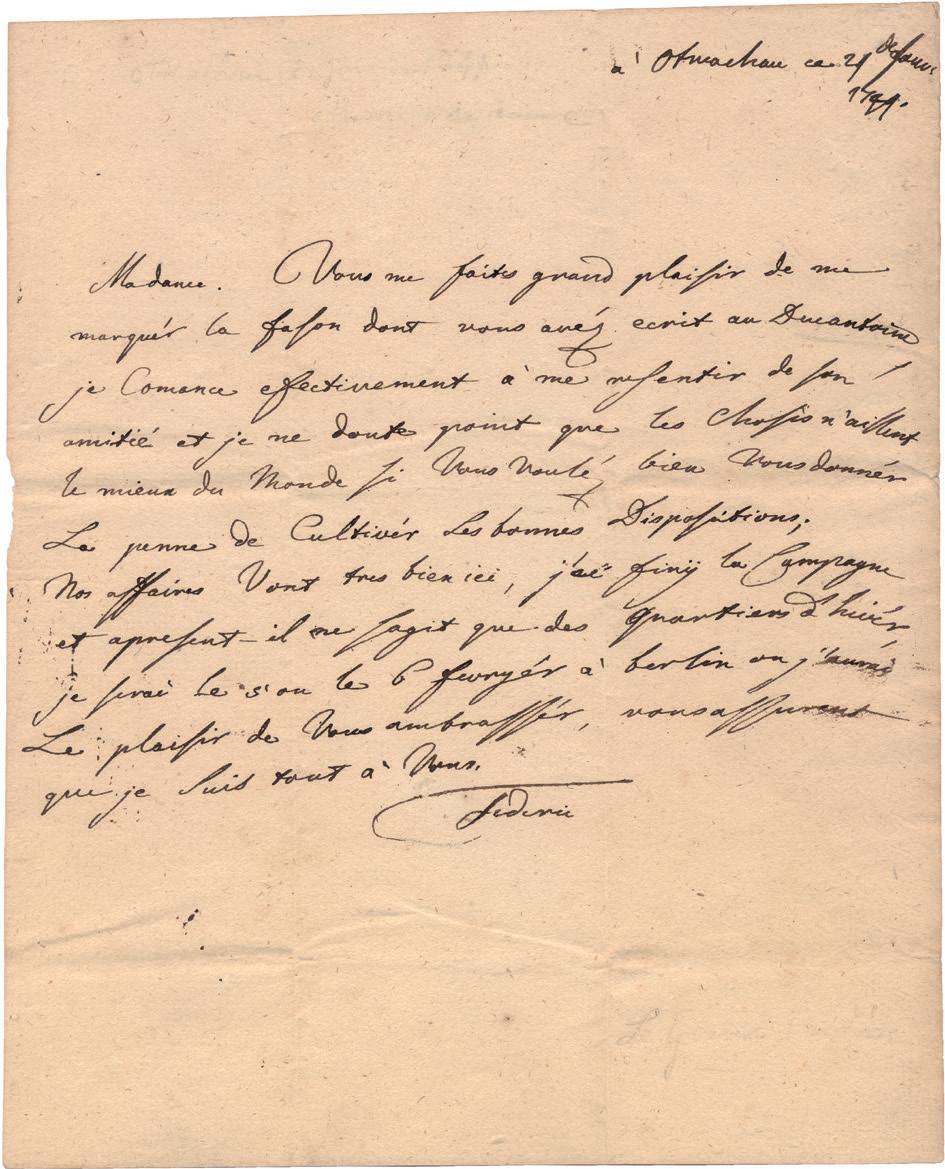 a' Otmachau ce 21 de Janv:
1741.
Madame. Vous me faites grand plaisir de me
marquér la fason dont vous avéz ecrit au Duc antoine
je Comance effectivement à me resentir de son
amitié et je ne doute point que les choses n'aillent
le mieux du Monde si Vous Voulé bien Vous donnér
La penne de Cultivér Les bonnes Dispositions;
Nos affaires Vont tres bien ici, j'aë finij la Campagne
et apresent il ne sagit que des quartiers d'hivér
je serai le 5 ou le 6 fevryér à berlin ou j'aurai
Le plaisir de Vous ambrassér, vous assurent
que je suis tout à Vous.
Federic